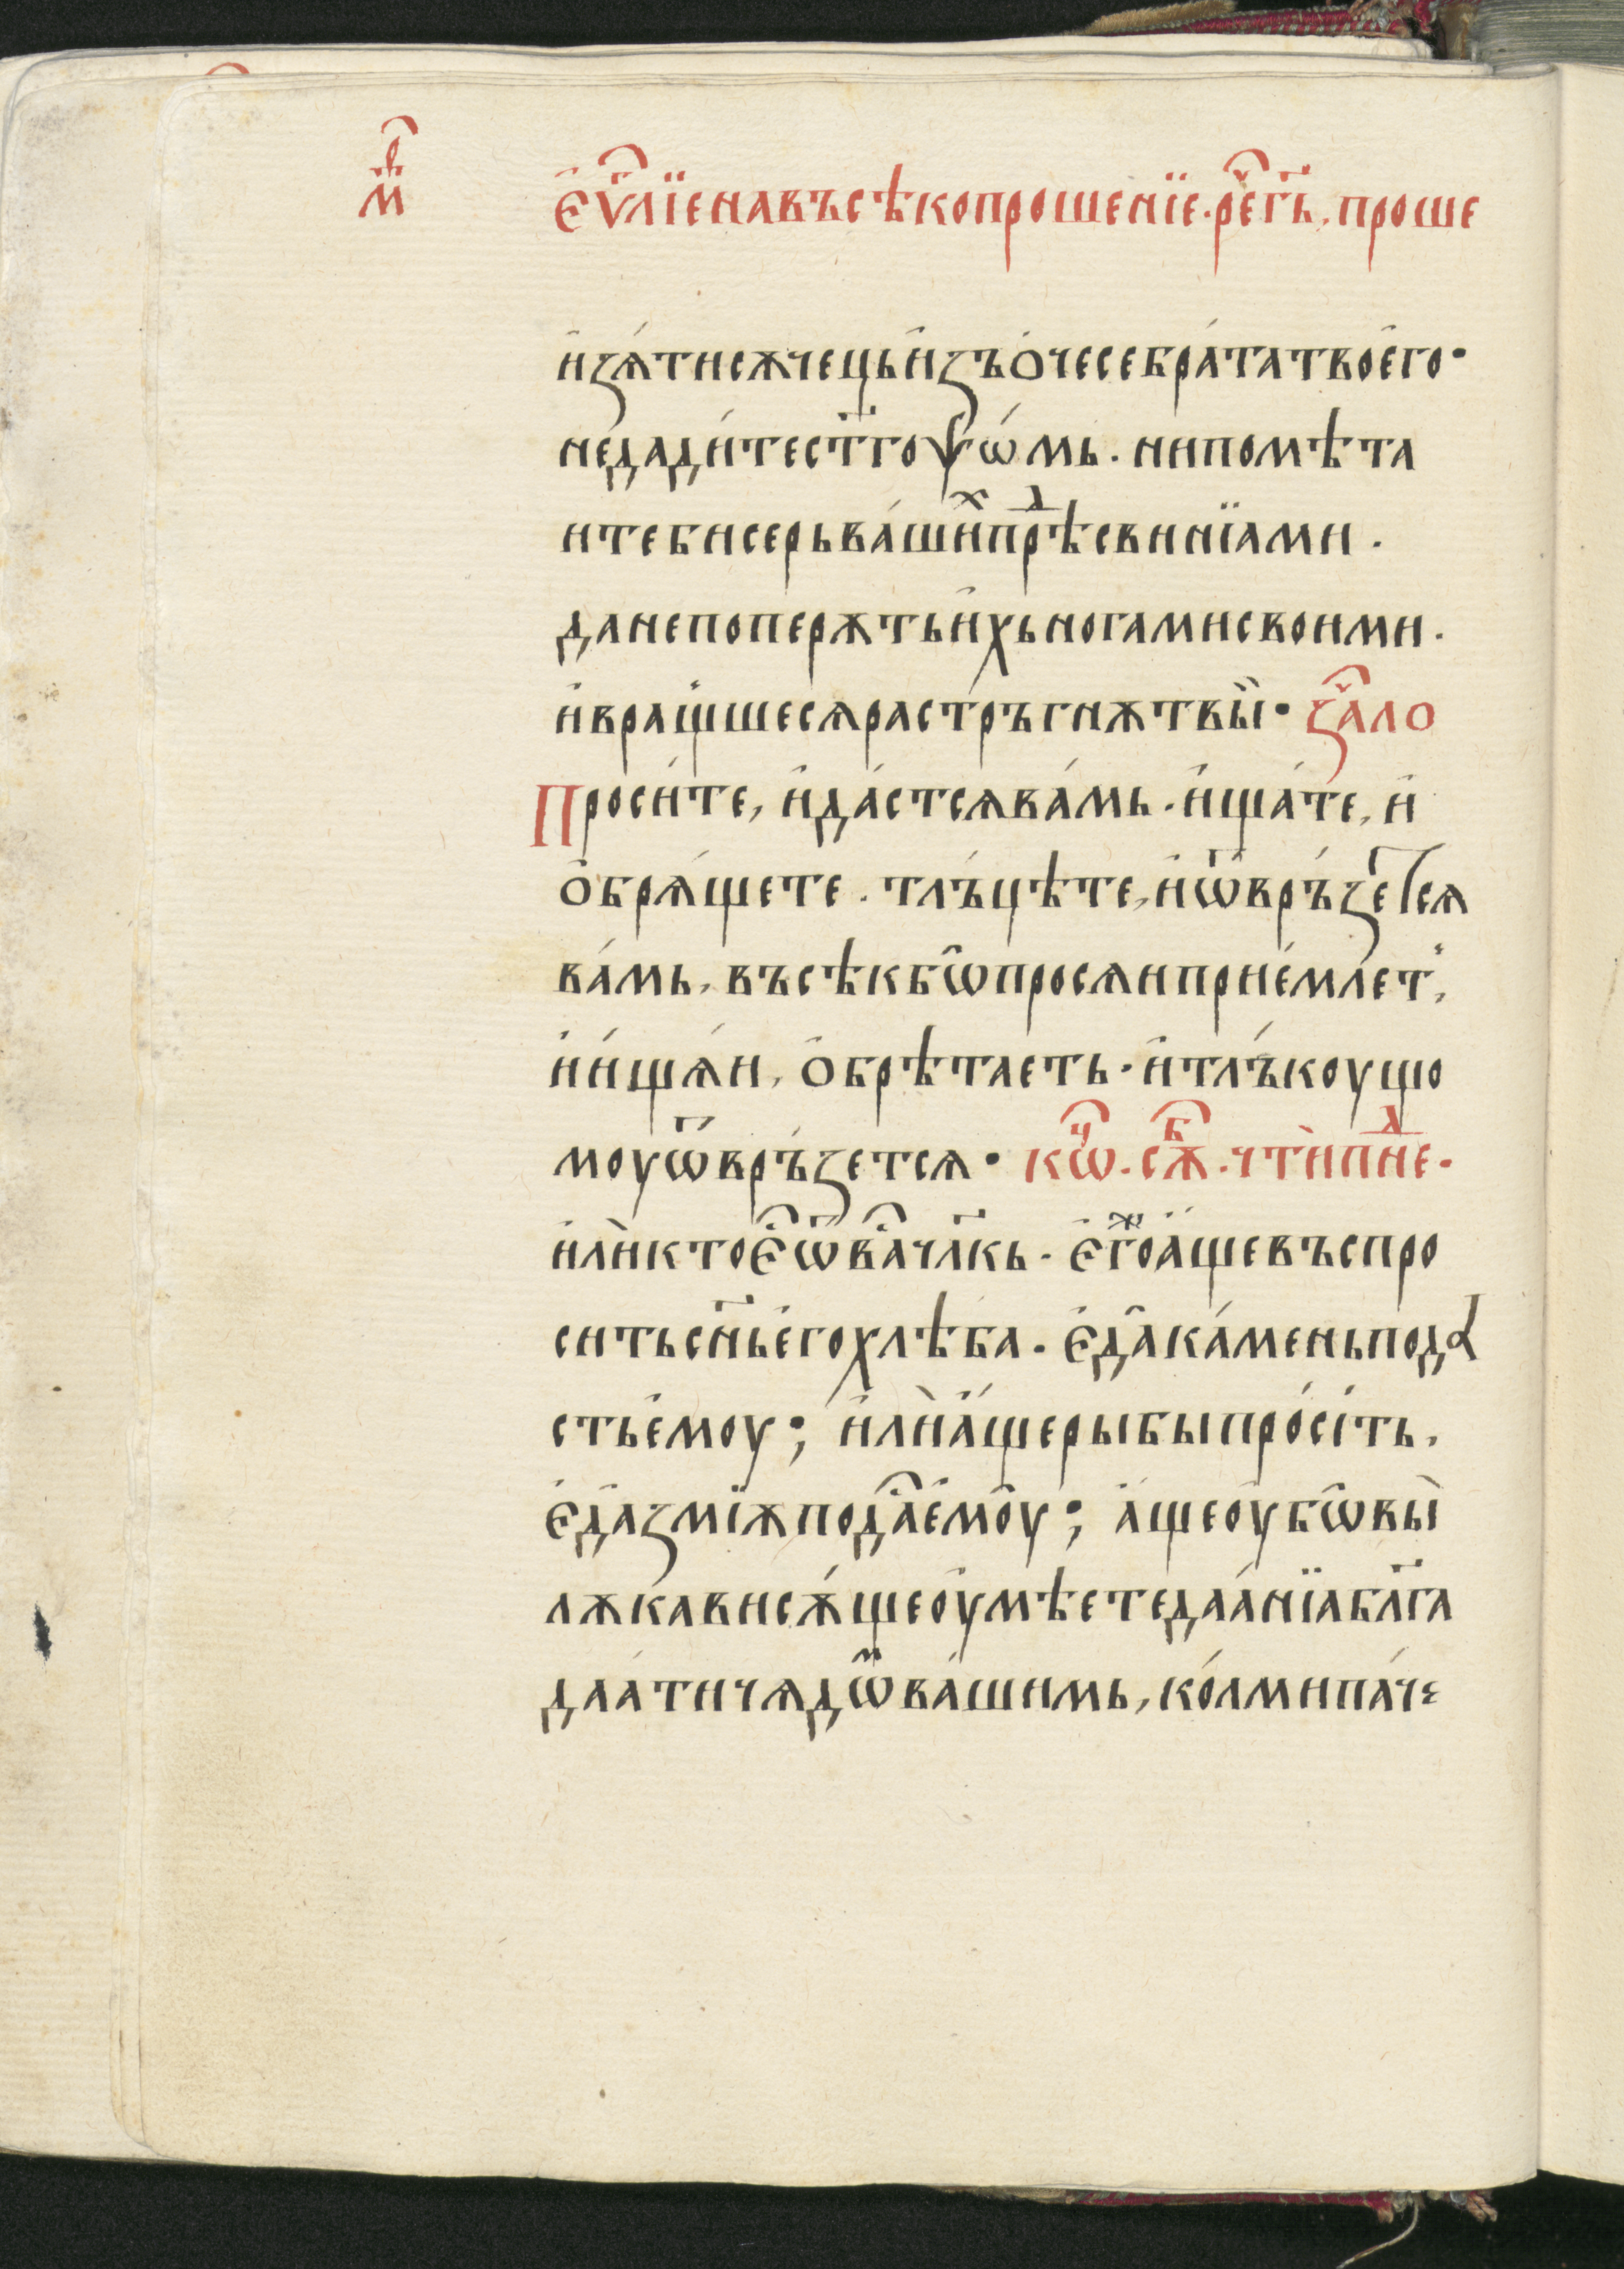 м҃
є҆ѵ҃лїе на въсѣко прошенїе · рє҃ гь҃, проше
и҆зѧ́ти сѫчець и҆зъ ѻ҆чесе бра́та твоего ·
не дади́те ст҃го ѱѡ́мь · ни помѣта
ите бисерь ва́ши́ⷯ прѣⷣ свинїами ·
да не поперѫть и҆хь ногами своими ·
и҆ вращшесѧ растръгнѫт вы̀ · за҃ло
Проси́те, и҆ да́стсѧ ва́мь · и҆ща́те, и҆
ѻ҆брѧ́щете · тлъ́цѣте, и҆ ѿвръ́зетсѧ
ва́мь, въсѣк бѡ просѧи прие́млет,
и҆ и́щѧи, ѻ҆брѣтаеть · и҆ тлъ́коущо
моу ѿвръ́зетсѧ · кѡⷰ҇ · сѫⷠ҇ · чти̇̀ пⷣне ·
и҆лѝ кто є҆ ѿ ва҃ чл҃кь · є҆го́ⷤ а҆́ще въспро
сить сн҃ь его хлѣба · є҆да̀ ка́мень пода
сть е҆моу ; и҆лѝ а҆́ще рыбы про́сіть,
є҆да̀ змїѫ пода҃ е҆моу ; а҆́ще оу҆бѡ вы̀
лѫкави сѫ́ще оу҆мѣете даа́нїа бл҃га
даа́ти чѧдѡⷨ ва́шимь, ко́лми па́че